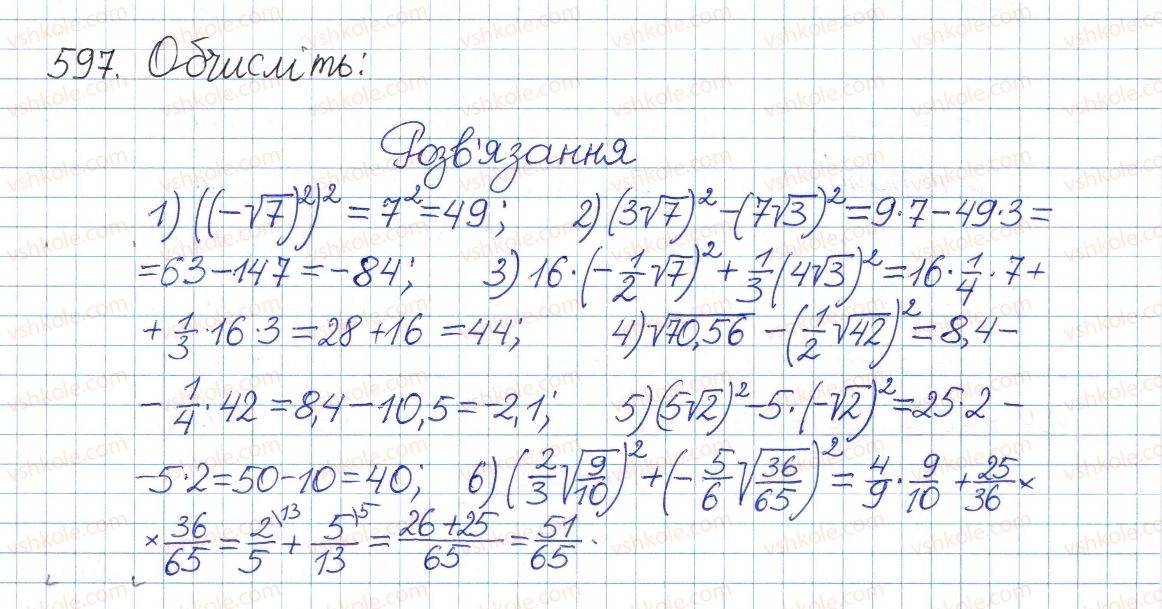 597. Обчисліть:
Розв'язання
1) ((-√7)²)² = 7² = 49; 2) (3√7)² - (7√3)² = 9·7 - 49·3 =
= 63 - 147 = -84; 3) 16·(-1/2 √7)² + 1/3 (4√3)² = 16·1/4·7 +
+ 1/3·16·3 = 28 + 16 = 44; 4) √70,56 - (1/2 √42)² = 8,4 -
- 1/4·42 = 8,4 - 10,5 = -2,1; 5) (5√2)² - 5·(-√2)² = 25·2 -
- 5·2 = 50 - 10 = 40; 6) (2/3 √9/10)² + (-5/6 √36/65)² = 4/9·9/10 + 25/36 ×
× 36/65 = 2/5 \13 + 5/13 \5 = 26+25/65 = 51/65.